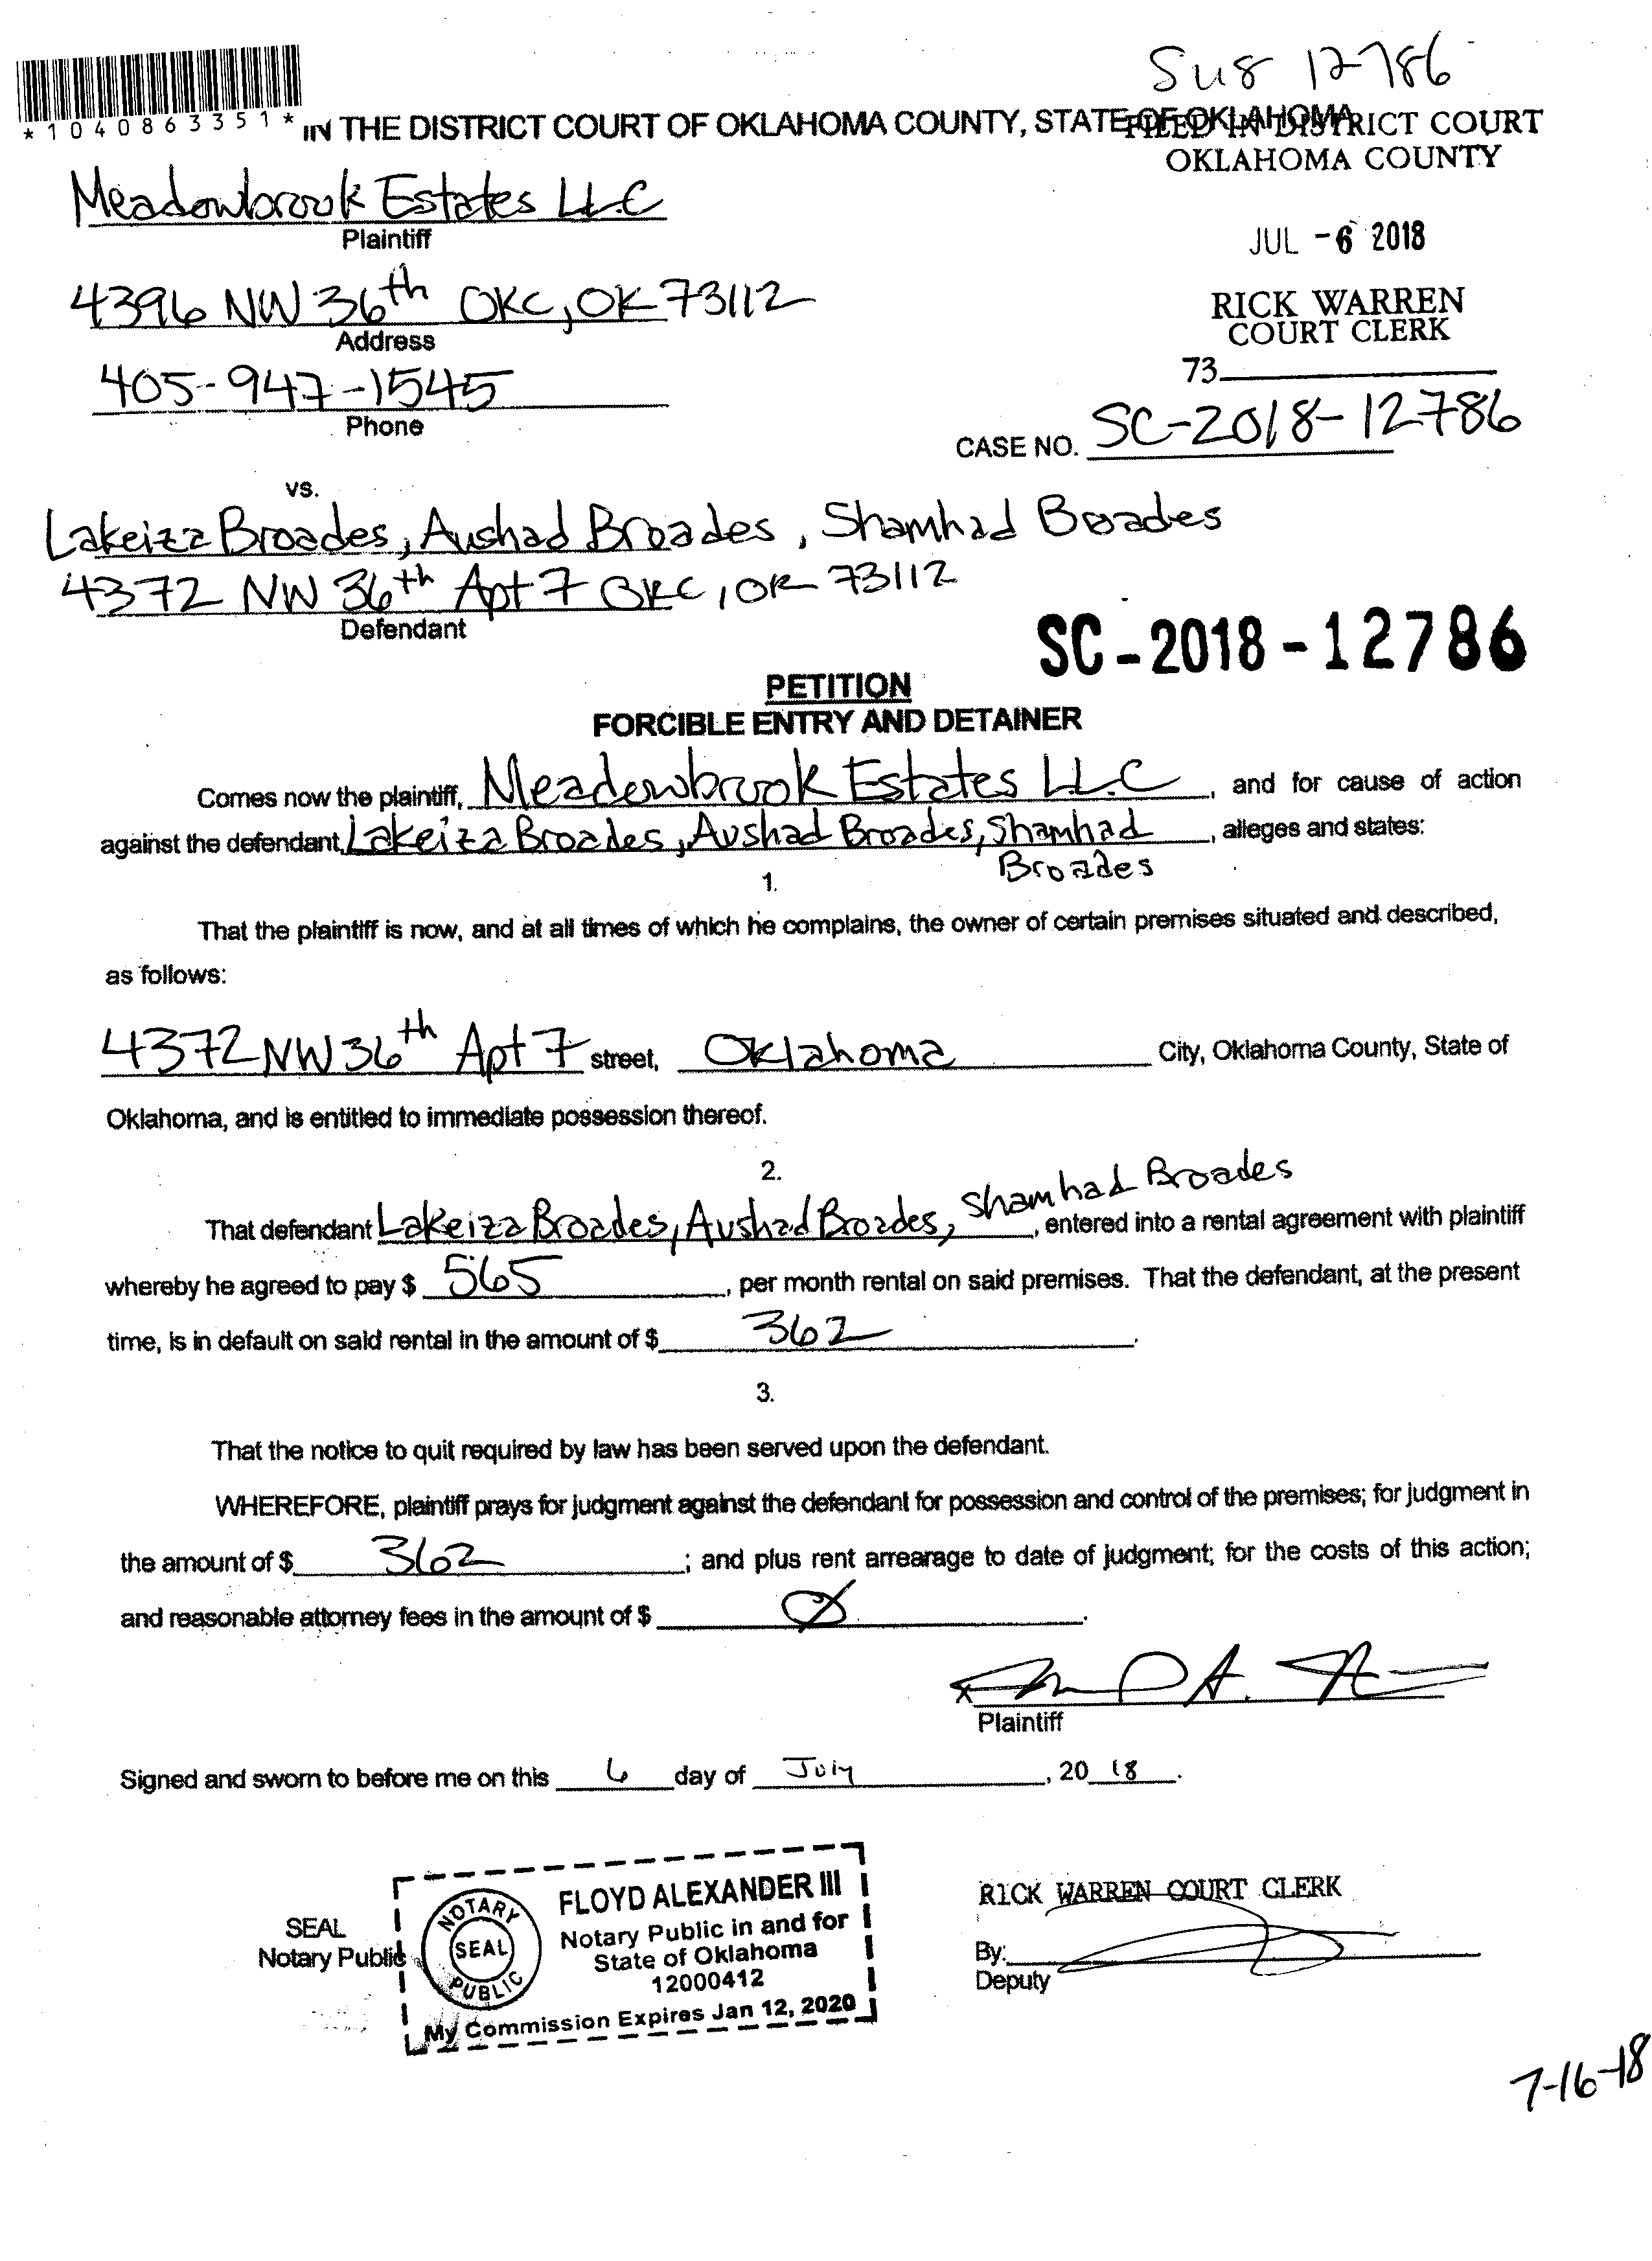 Su8 12786
*1040863351*
IN THE DISTRICT COURT OF OKLAHOMA COUNTY, STATE OF OKLAHOMA
FILED IN DISTRICT COURT
OKLAHOMA COUNTY
Meadowbrook Estates LLC
Plaintiff
JUL -6 2018
4396 NW 36th OKC, OK 73112
Address
RICK WARREN
COURT CLERK
405-947-1545
Phone
73
CASE NO. SC-2018-12786
vs.
Lakeiza Broades, Aushad Broades, Shamhad Broades
4372 NW 36th Apt 7 OKC, OK 73112
Defendant
SC-2018-12786
PETITION
FORCIBLE ENTRY AND DETAINER
Comes now the plaintiff, Meadowbrook Estates LLC, and for cause of action
against the defendant, Lakeiza Broades, Aushad Broades, Shamhad, alleges and states:
Broades
1.
That the plaintiff is now, and at all times of which he complains, the owner of certain premises situated and described,
as follows:
4372 NW 36th Apt 7 street, Oklahoma City, Oklahoma County, State of
Oklahoma, and is entitled to immediate possession thereof.
2.
That defendant Lakeiza Broades, Aushad Broades, Shamhad Broades, entered into a rental agreement with plaintiff
whereby he agreed to pay $ 565, per month rental on said premises. That the defendant, at the present
time, is in default on said rental in the amount of $ 362.
3.
That the notice to quit required by law has been served upon the defendant.
WHEREFORE, plaintiff prays for judgment against the defendant for possession and control of the premises; for judgment in
the amount of $ 362; and plus rent arrearage to date of judgment; for the costs of this action;
and reasonable attorney fees in the amount of $ Ø.
x
Plaintiff
Signed and sworn to before me on this 6 day of July, 20 18.
SEAL
Notary Public
NOTARY PUBLIC
SEAL
FLOYD ALEXANDER III
Notary Public in and for
State of Oklahoma
12000412
My Commission Expires Jan 12, 2020
RICK WARREN COURT CLERK
By:
Deputy
7-16-18